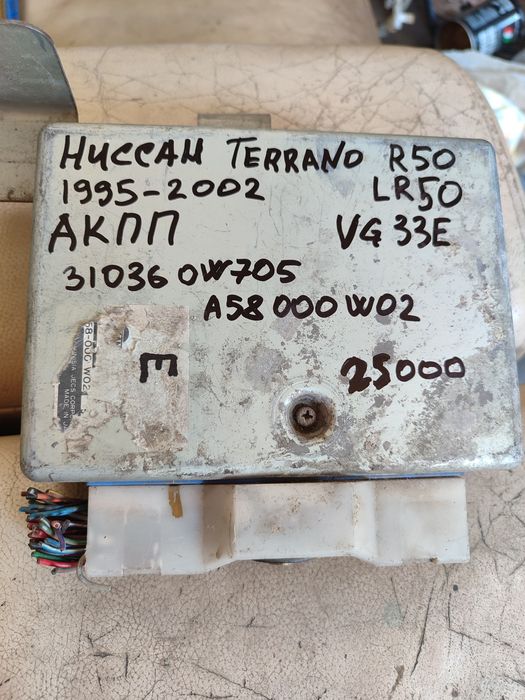 НИССАН TERRANO R50
1995-2002 LR50
АКПП VG33E
31036 0W705
A58 000 W02
E
25000
JECS CORP
MADE IN